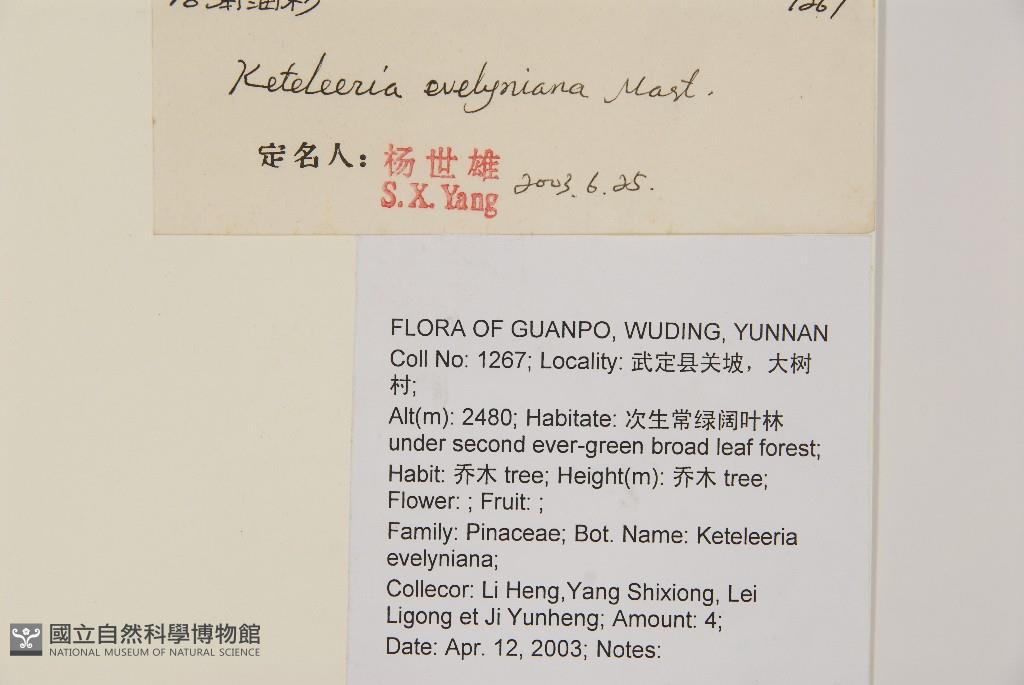 1267
Keteleeria evelyniana Mast.
定名人: 杨世雄
S.X.Yang 2003.6.25.
FLORA OF GUANPO, WUDING, YUNNAN
Coll No: 1267; Locality: 武定县关坡，大树
村;
Alt(m): 2480; Habitate: 次生常绿阔叶林
under second ever-green broad leaf forest;
Habit: 乔木 tree; Height(m): 乔木 tree;
Flower: ; Fruit: ;
Family: Pinaceae; Bot. Name: Keteleeria
evelyniana;
Collecor: Li Heng,Yang Shixiong, Lei
Ligong et Ji Yunheng; Amount: 4;
Date: Apr. 12, 2003; Notes:
國立自然科學博物館
NATIONAL MUSEUM OF NATURAL SCIENCE